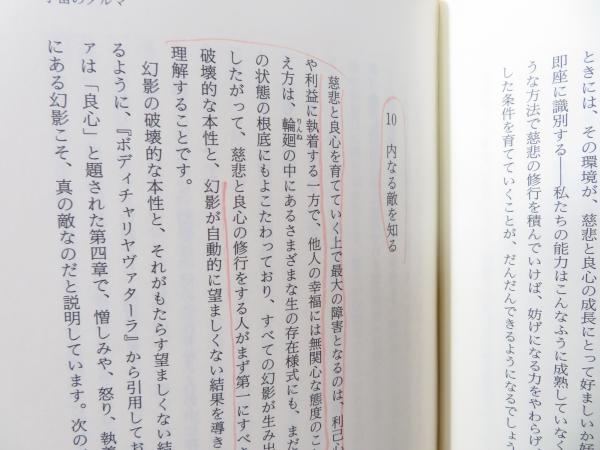 ときには、その環境が、慈悲と良心の成長にとって好ましいか好
即座に識別する――私たちの能力はこんなふうに成熟していなく
うな方法で慈悲の修行を積んでいけば、妨げになる力をやわらげ、
した条件を育てていくことが、だんだんできるようになるでしょう
宇宙のクルマ
10 内なる敵を知る
慈悲と良心を育てていく上で最大の障害となるのは、利己心
や利益に執着する一方で、他人の幸福には無関心な態度のこ
え方は、輪廻の中にあるさまざまな生の存在様式にも、まだ
りんね
の状態の根底にもよこたわっており、すべての幻影が生み出
したがって、慈悲と良心の修行をする人がまず第一にすべき
破壊的な本性と、幻影が自動的に望ましくない結果を導き
理解することです。
幻影の破壊的な本性と、それがもたらす望ましくない結
るように、『ボディチャリヤヴァターラ』から引用してお
ァは「良心」と題された第四章で、憎しみや、怒り、執着
にある幻影こそ、真の敵なのだと説明しています。次の